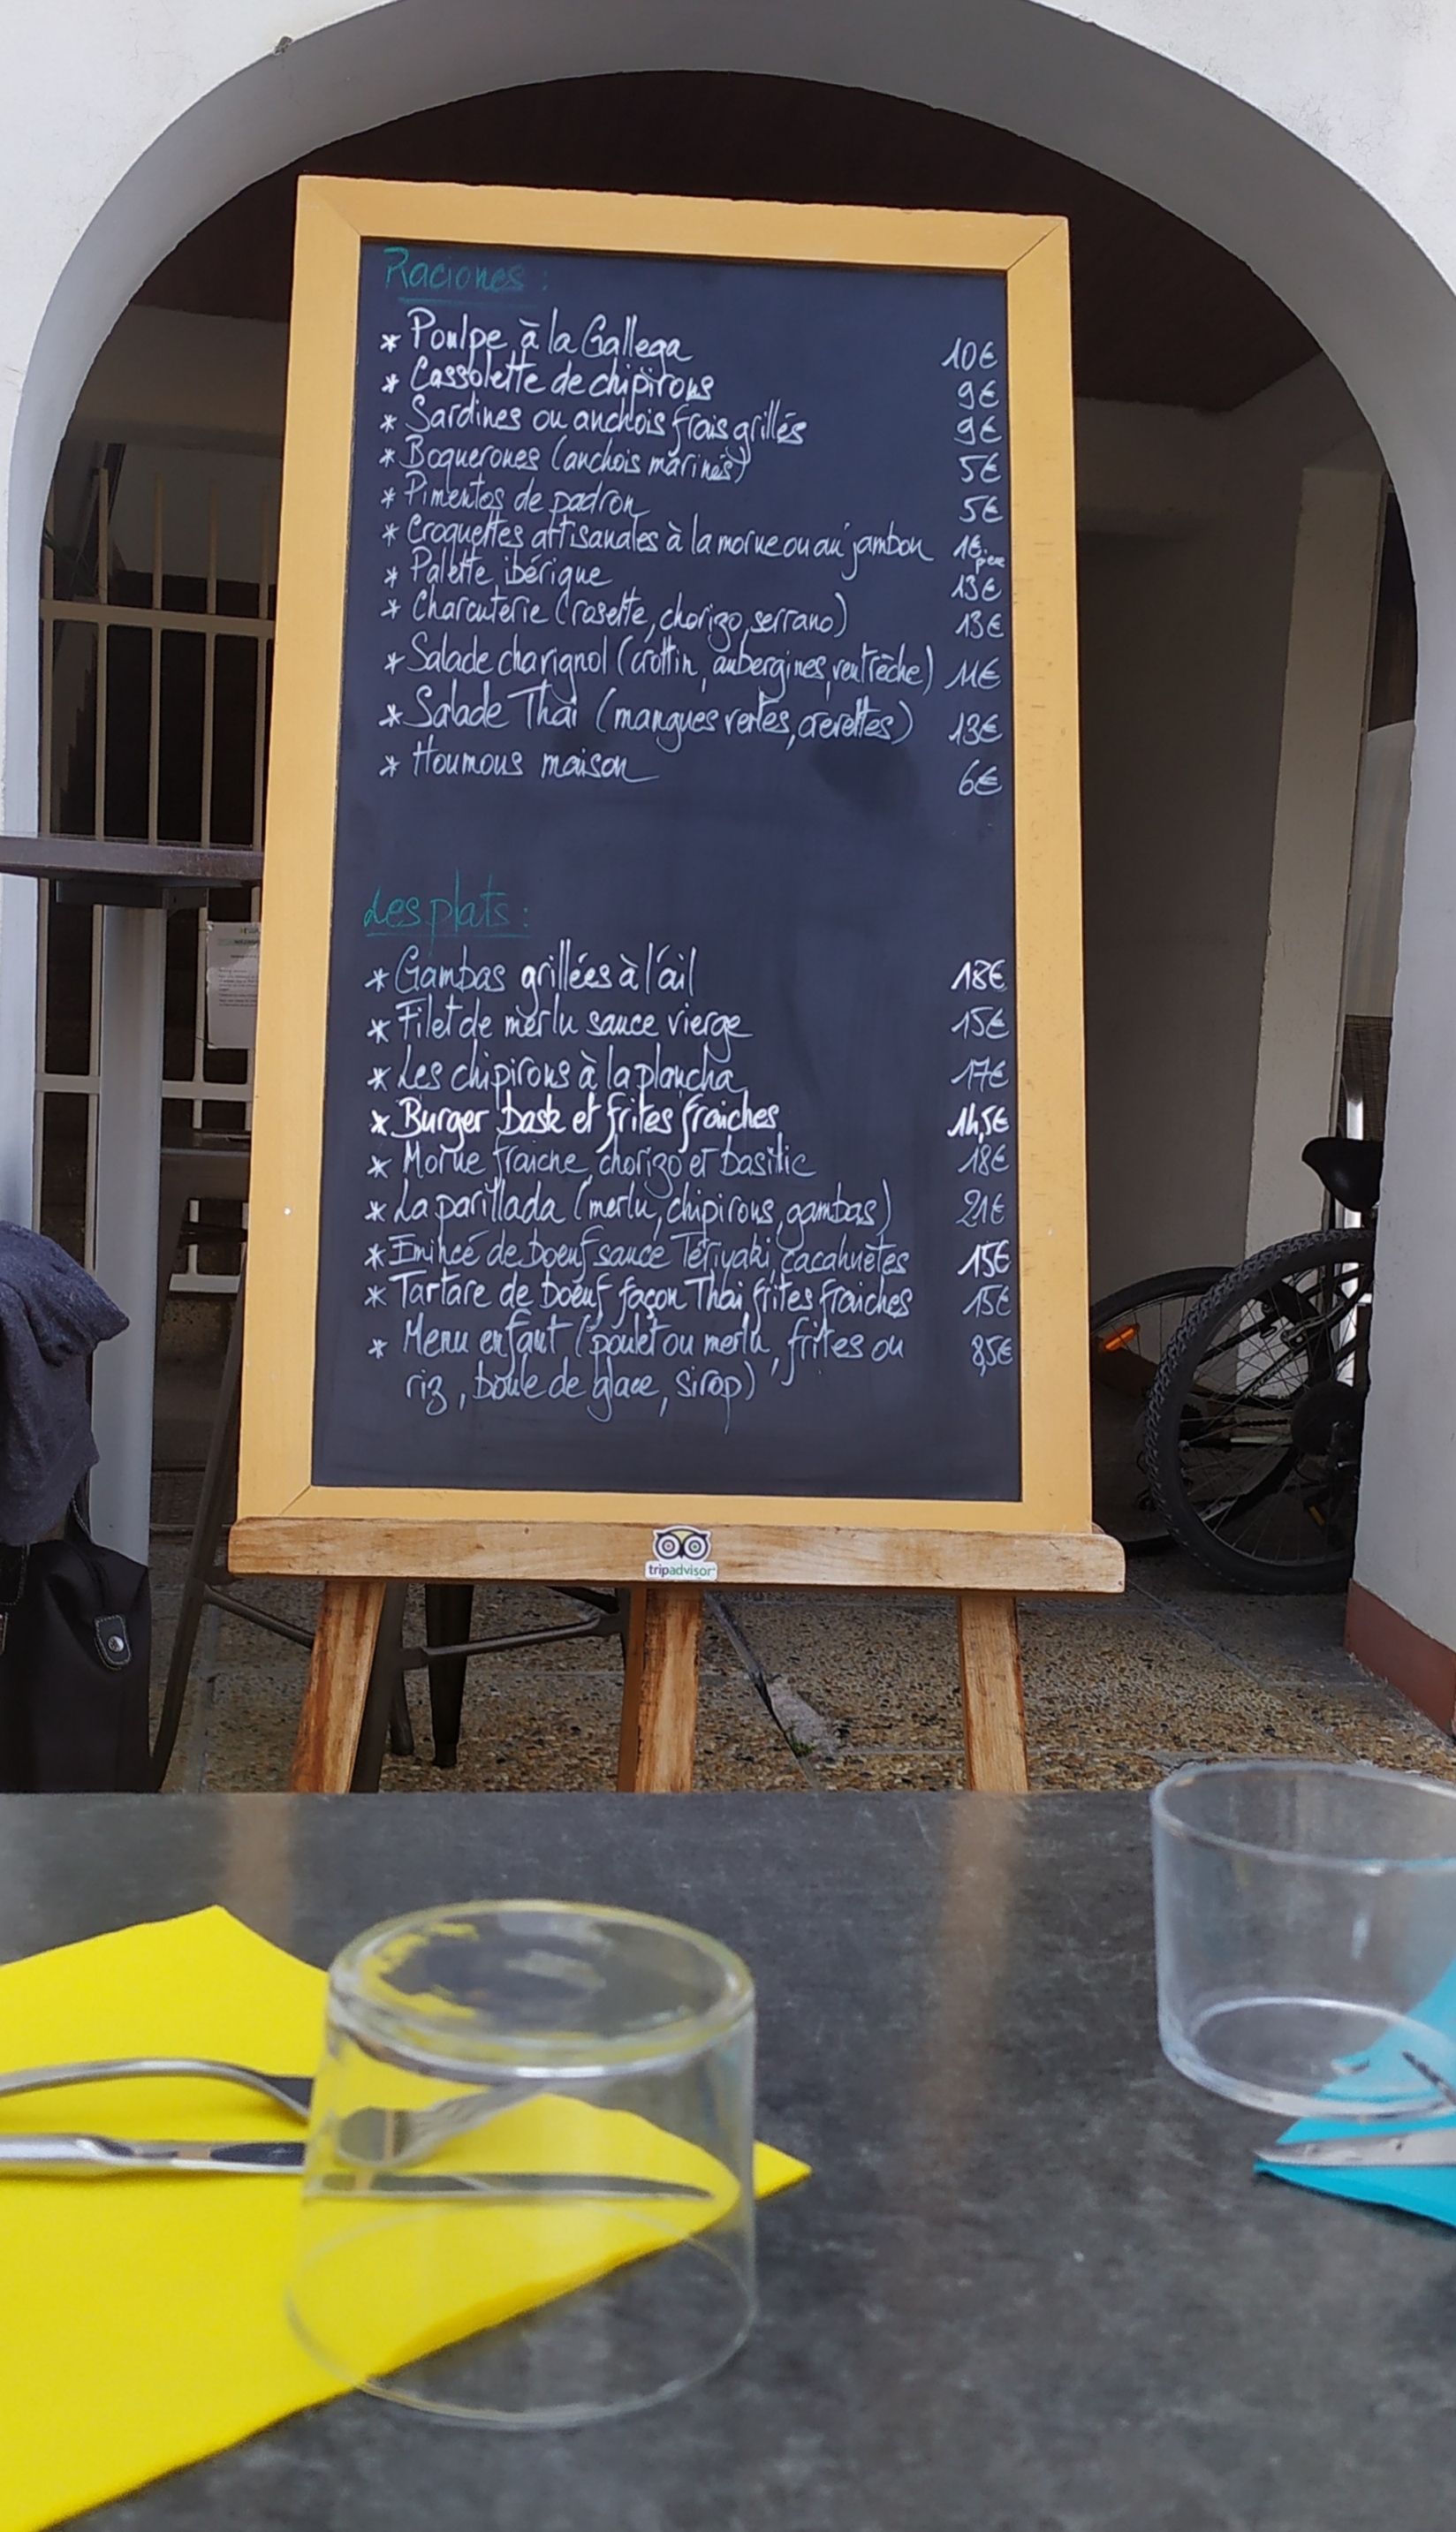 Raciones :
* Poulpe à la Gallega 10€
* Cassolette de chipirons 9€
* Sardines ou anchois frais grillés 9€
* Boquerones (anchois marinés) 5€
* Pimentos de padron 5€
* Croquettes artisanales à la morue ou au jambon 1€ pce
* Palette ibérique 13€
* Charcuterie (rosette, chorizo, serrano) 13€
* Salade charignol (crottin, aubergines, ventrèche) 11€
* Salade Thaï (mangues vertes, crevettes) 13€
* Houmous maison 6€
Les plats :
* Gambas grillées à l'ail 18€
* Filet de merlu sauce vierge 15€
* Les chipirons à la plancha 17€
* Burger bask et frites fraiches 14,5€
* Morue fraiche, chorizo et basilic 18€
* La parillada (merlu, chipirons, gambas) 21€
* Emincé de boeuf sauce Tériyaki, cacahuètes 15€
* Tartare de boeuf façon Thaï, frites fraiches 15€
* Menu enfant (poulet ou merlu, frites ou 8,5€
riz, boule de glace, sirop)
tripadvisor